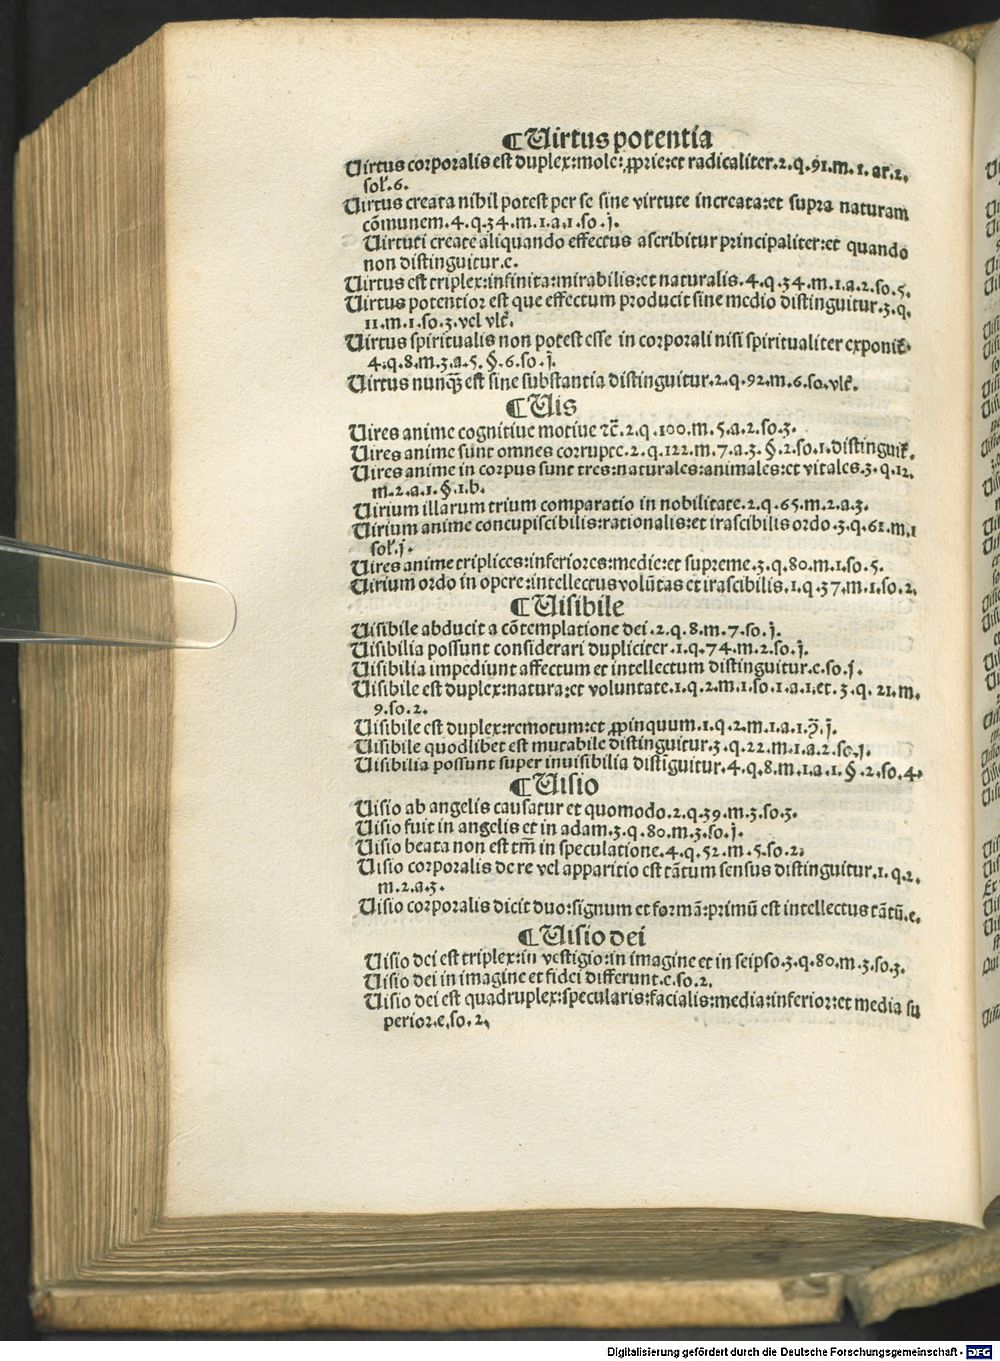 ¶Uirtus potentia
Uirtus corporalis est duplex:mole:ꝓprie:et radicaliter.2.q.91.m.1.ar.2.
sol̃.6.
Uirtus creata nihil potest per se sine virtute increata:et supra naturam
cõmunem.4.q.34.m.1.a.1.so.j.
Uirtuti create aliquando effectus ascribitur principaliter:et quando
non distinguitur.e.
Uirtus est triplex:infinita:mirabilis:et naturalis.4.q.34.m.1.a.2.so.5.
Uirtus potentior est que effectum producit sine medio distinguitur.3.q.
11.m.1.so.3.vel vlt̃.
Uirtus spiritualis non potest esse in corporali nisi spiritualiter exponit̃.
4.q.8.m.3.a.5.§.6.so.j.
Uirtus nunq̃ est sine substantia distinguitur.2.q.92.m.6.so.vlt̃.
¶Uis
Uires anime cognitiue motiue ⁊c̃.2.q.100.m.5.a.2.so.3.
Uires anime sunt omnes corrupte.2.q.122.m.7.a.3.§.2.so.1.distinguit̃.
Uires anime in corpus sunt tres:naturales:animales:et vitales.3.q.12.
m.2.a.1.§.1.b.
Uirium illarum trium comparatio in nobilitate.2.q.65.m.2.a.3.
Uirium anime concupiscibilis:rationalis:et irascibilis ordo.3.q.61.m.1
sol̃.j.
Uires anime triplices:inferiores:medie:et supreme.3.q.80.m.1.so.5.
Uirium ordo in opere:intellectus volũtas et irascibilis.1.q.37.m.1.so.2.
¶Uisibile
Uisibile abducit a cõtemplatione dei.2.q.8.m.7.so.j.
Uisibilia possunt considerari dupliciter.1.q.74.m.2.so.j.
Uisibilia impediunt affectum et intellectum distinguitur.e.so.j.
Uisibile est duplex:natura:et voluntate.1.q.2.m.1.so.1.a.1.et.3.q.21.m.
9.so.2.
Uisibile est duplex:remotum:et ꝓpinquum.1.q.2.m.1.a.1.j.
Uisibile quodlibet est mutabile distinguitur.3.q.22.m.1.a.2.so.j.
Uisibilia possunt super inuisibilia distiguitur.4.q.8.m.1.a.1.§.2.so.4.
¶Uisio
Uisio ab angelis causatur et quomodo.2.q.39.m.3.so.3.
Uisio fuit in angelis et in adam.3.q.80.m.3.so.j.
Uisio beata non est tm̃ in speculatione.4.q.52.m.5.so.2.
Uisio corporalis de re vel apparitio est tãtum sensus distinguitur.1.q.2.
m.2.a.3.
Uisio corporalis dicit duo:signum et formã:primũ est intellectus tãtũ.e.
¶Uisio dei
Uisio dei est triplex:in vestigio:in imagine et in seipso.3.q.80.m.3.so.3.
Uisio dei in imagine et fidei differunt.e.so.2.
Uisio dei est quadruplex:specularis:facialis:media:inferior:et media su
perior.e.so.2.
Digitalisierung gefördert durch die Deutsche Forschungsgemeinschaft - DFG